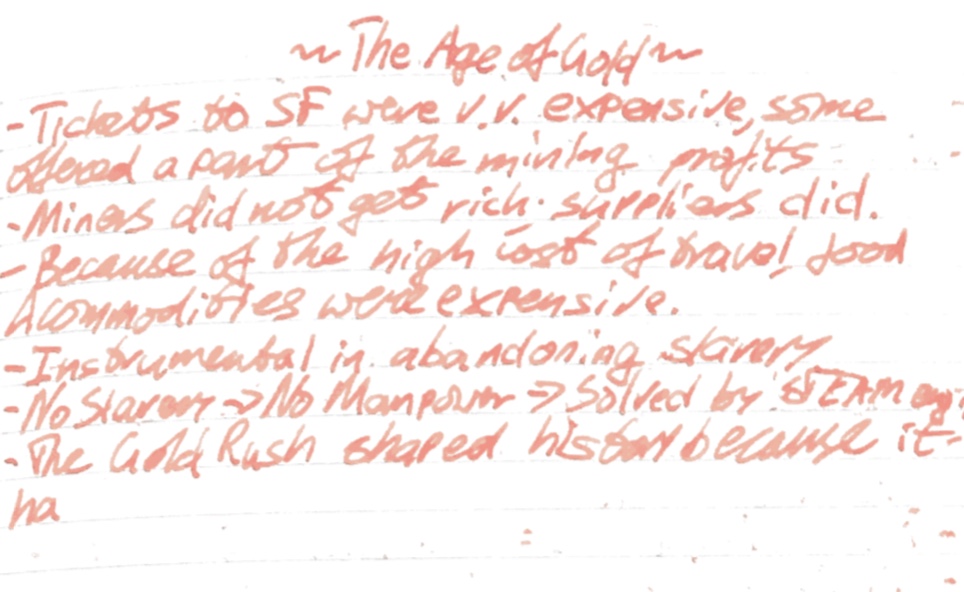 ~The Age of Gold~
-Tickets to SF were v.v. expensive, some
offered a part of the mining profits
-Miners did not get rich. suppliers did.
-Because of the high cost of travel, food
& commodities were expensive.
-Instrumental in abandoning slavery
-No Slavery -> No Manpower -> Solved by STEAM
-The Gold Rush shaped history because it
ha